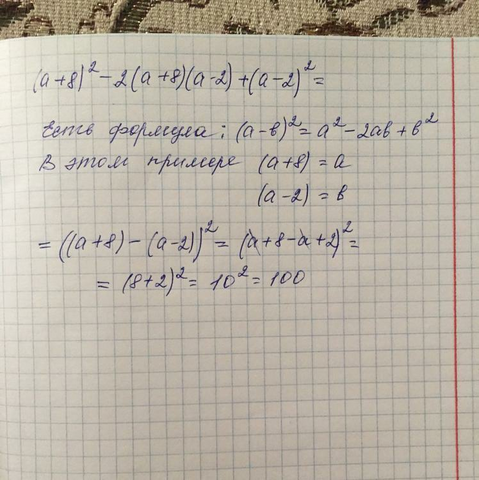 (a+8)² - 2(a+8)(a-2) + (a-2)² =
Есть формула: (a-в)² = a² - 2ав + в²
В этом примере (a+8) = a
(a-2) = в
= ((a+8) - (a-2))² = (a+8-a+2)² =
= (8+2)² = 10² = 100